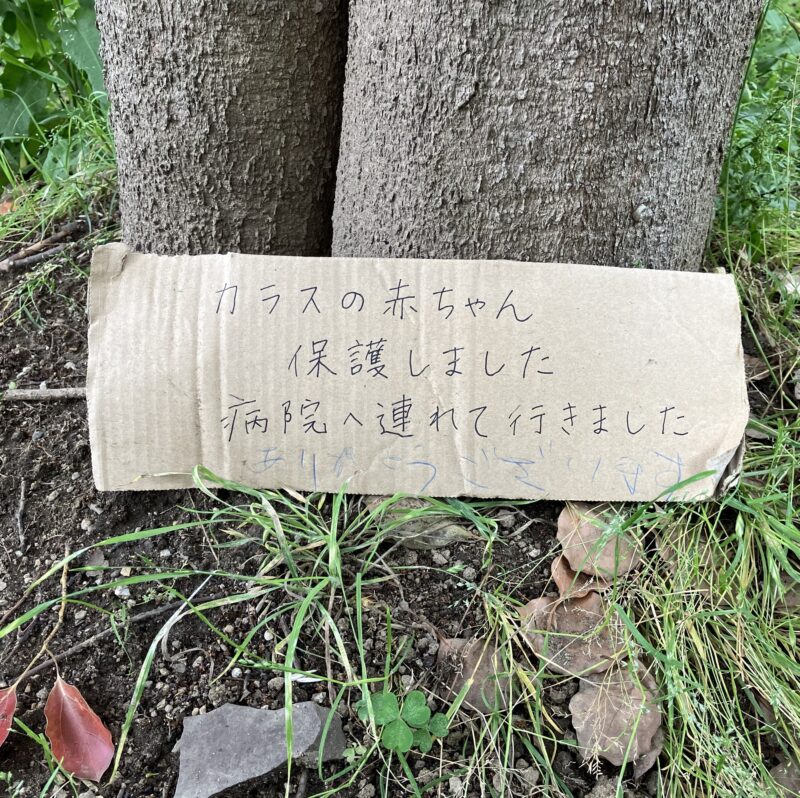 カラスの赤ちゃん
保護しました
病院へ連れて行きました
ありがとうございます